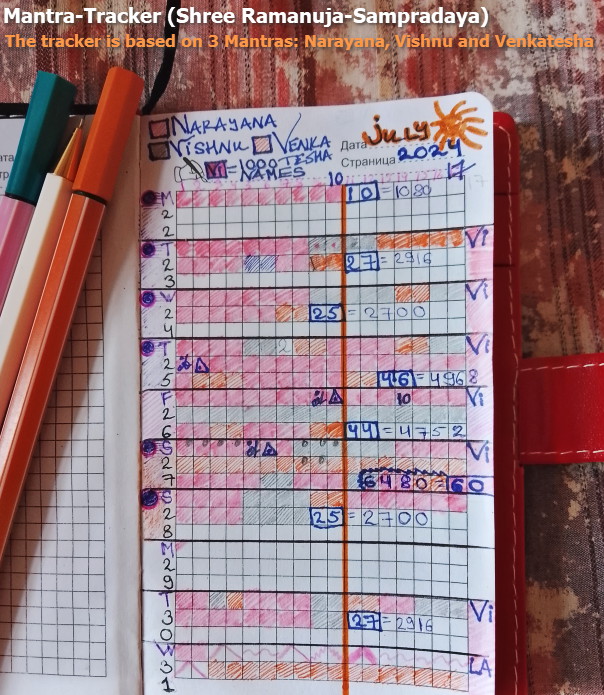 Mantra-Tracker (Shree Ramanuja-Sampradaya)
The tracker is based on 3 Mantras: Narayana, Vishnu and Venkatesha
NARAYANA
VISHNU VENKATESHA
Vi = 1000 NAMES
Дата JULY
Страница 2024
10 17
M 22 10 = 1080
T 23 Vi
27 = 2916
W 24 Vi
25 = 2700
T 25 Vi
46 = 4968
F 26 10 Vi
44 = 4752
S 27 Vi
6480 = 60
S 28
25 = 2700
M 29
T 30 Vi
27 = 2916
W 31 LA